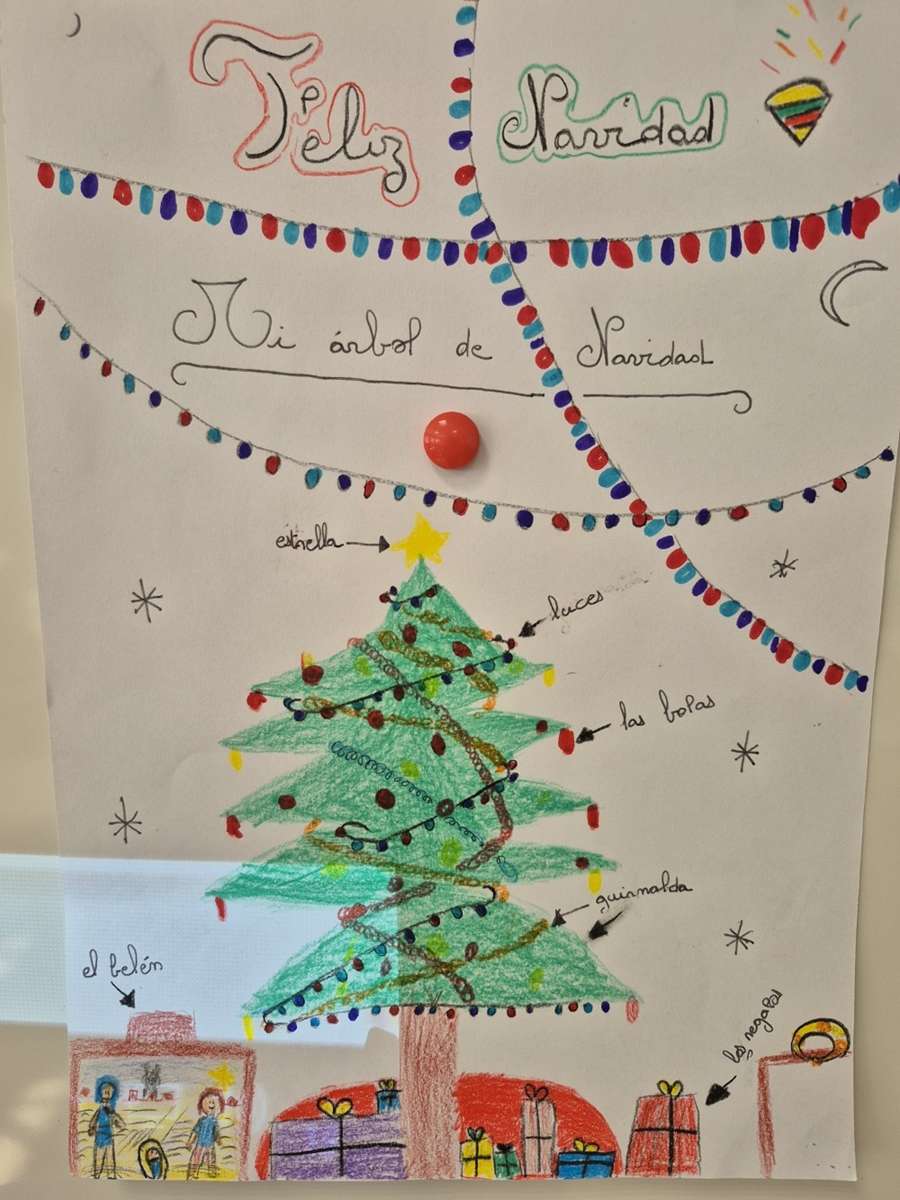 Feliz Navidad
Mi árbol de Navidad
estrella
luces
las bolas
guirnalda
el belén
los regalos